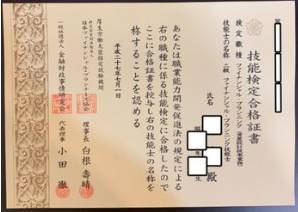 技能検定合格証書
検定職種 ファイナンシャル・プランニング
技能士の名称 二級 ファイナンシャル・プランニング技能士
氏名
殿
生
あなたは職業能力開発促進法の規定による
右の職種に係る技能検定に合格したので
ここに合格証書を授与し右の技能士の名称を
称することを認める
平成二十七年七月一日
厚生労働大臣指定試験機関
日本ファイナンシャル・プランナーズ協会
理事長 白根壽晴
一般社団法人 金融財政事情研究会
代表理事 小田徹